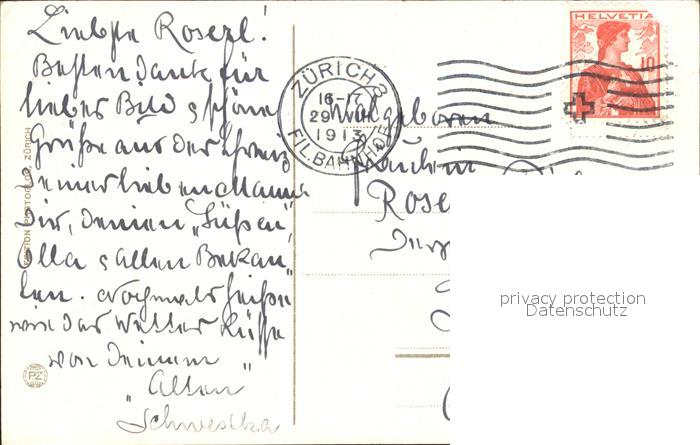 Liebste Roserl!
Besten Dank für
liebes Bild & schöne
Grüße aus der Schweiz
Deiner lieben Mama
Dir, Deinen „Süßen"
Olla & allen Bekan-
ten. Nochmals heiße
wie das Wetter Küsse
von Deinem
„Alten"
Schwestka
ZÜRICH 8
16-17
29 VIII
1913
FIL. BAHNHOF
HELVETIA
10
Wohlgeboren
Fräulein
Rose
PHOTOGLOB ZÜRICH
PZ
privacy protection
Datenschutz